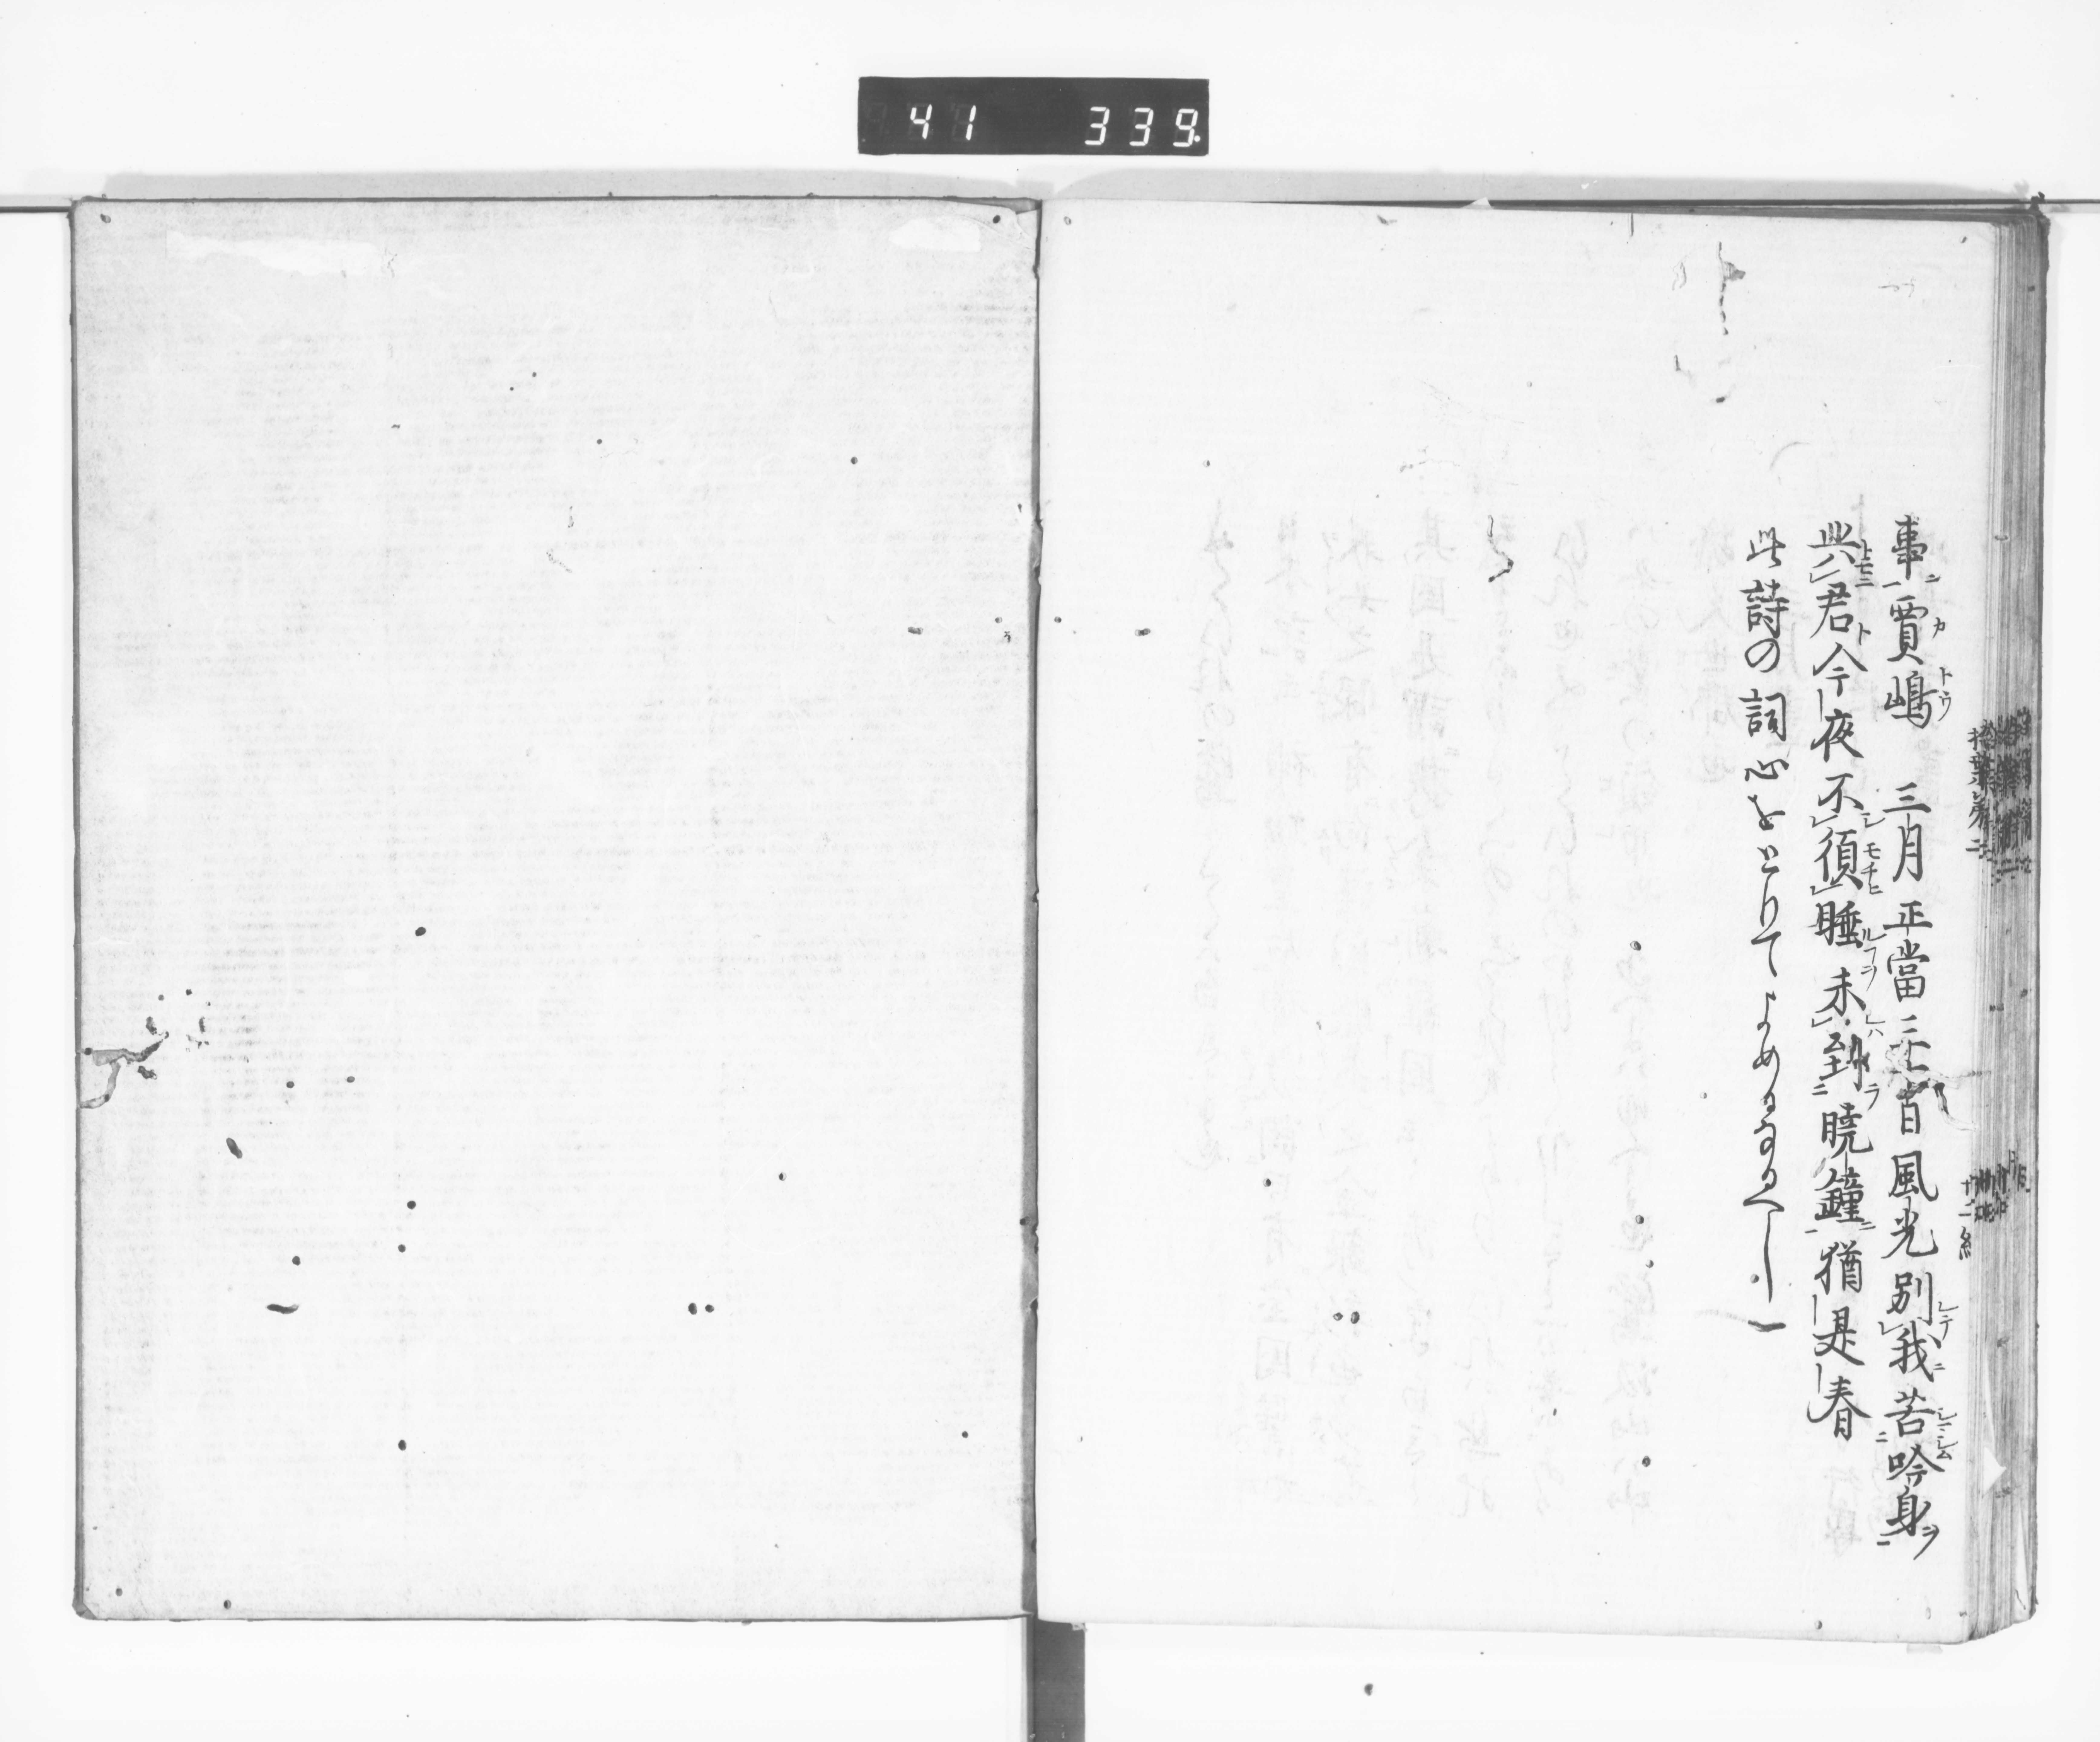 41 339
事賈嶋 三月正當三十日風光別我苦吟身
與君今夜不須睡未到曉鐘猶是春
此詩の詞心をとりてよめるなるへし
拾葉第二
十二 終